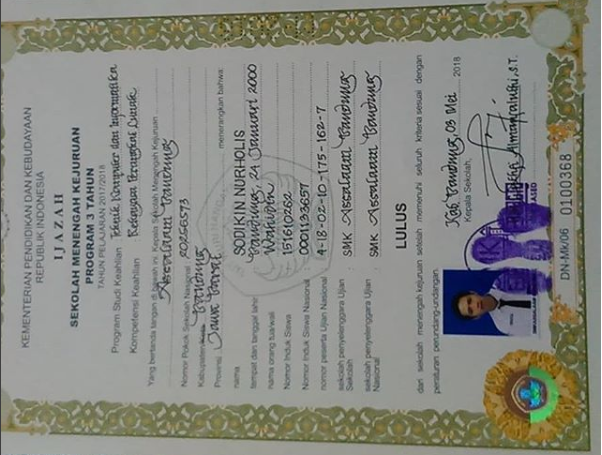 KEMENTERIAN PENDIDIKAN DAN KEBUDAYAAN
REPUBLIK INDONESIA
IJAZAH
SEKOLAH MENENGAH KEJURUAN
PROGRAM 3 TAHUN
TAHUN PELAJARAN 2017/2018
Program Studi Keahlian : Teknik Komputer dan Informatika
Kompetensi Keahlian : Rekayasa Perangkat Lunak
Yang bertanda tangan di bawah ini, Kepala Sekolah Menengah Kejuruan
Assalaam Bandung
Nomor Pokok Sekolah Nasional 20256573
Kabupaten/Kota Bandung
Provinsi Jawa Barat menerangkan bahwa:
nama SODIKIN NURHOLIS
tempat dan tanggal lahir Bandung, 24 Januari 2000
nama orang tua/wali Wahidin
Nomor Induk Siswa 151610262
Nomor Induk Siswa Nasional 0001133657
nomor peserta Ujian Nasional 4-18-02-10-175-162-7
sekolah penyelenggara Ujian Sekolah : SMK Assalaam Bandung
sekolah penyelenggara Ujian Nasional : SMK Assalaam Bandung
LULUS
dari sekolah menengah kejuruan setelah memenuhi seluruh kriteria sesuai dengan
peraturan perundang-undangan.
Kab Bandung, 03 Mei 2018
Kepala Sekolah,
DN-Mk/06 0100368